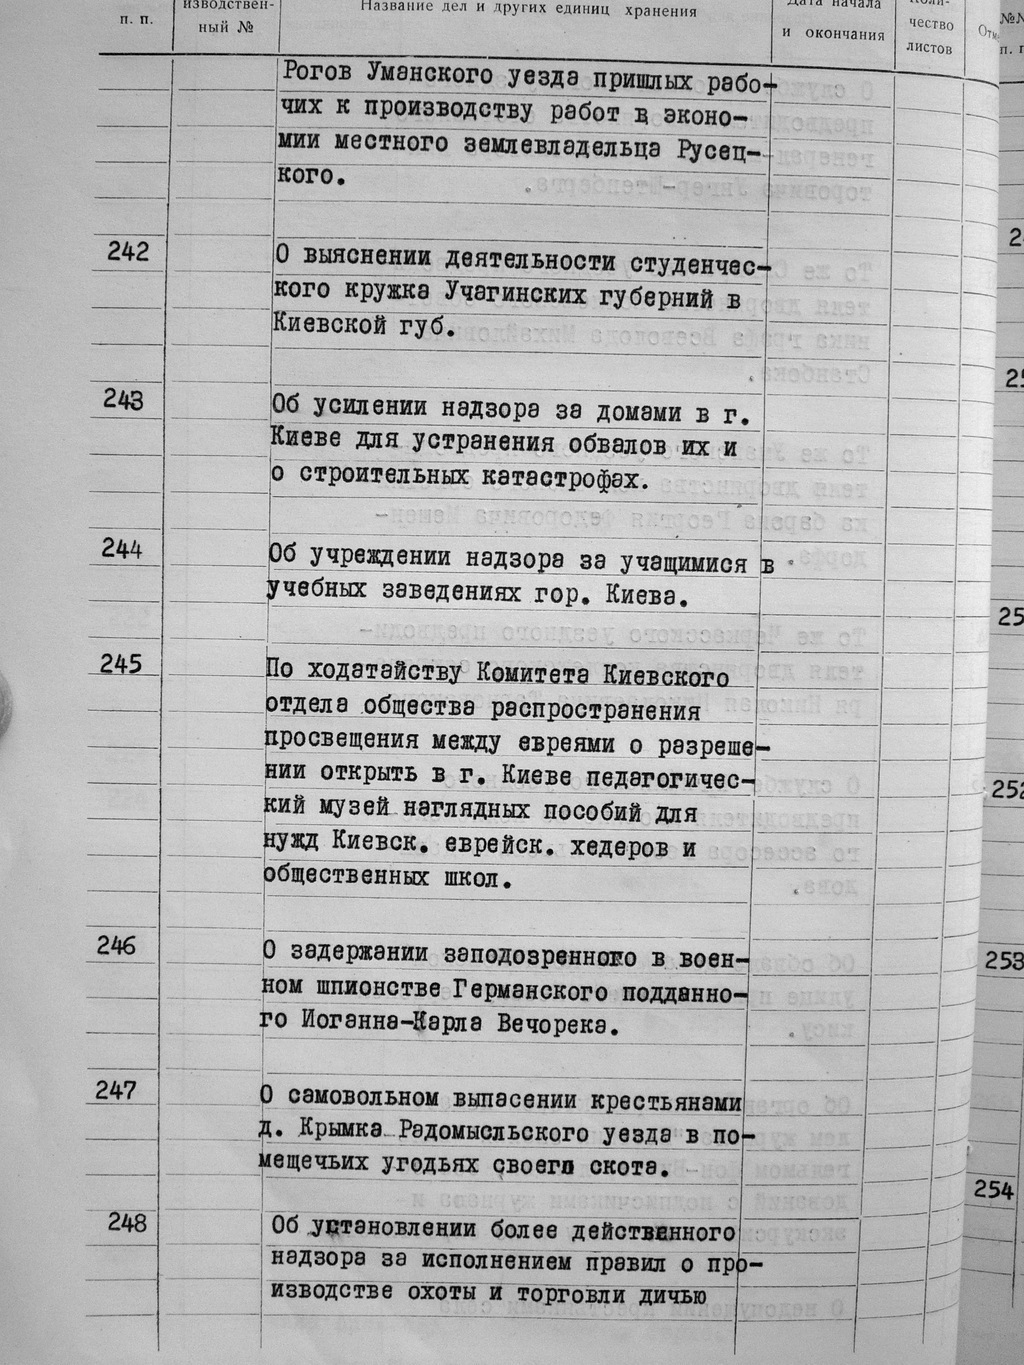 п. п.
изводствен-
ный №
Название дел и других единиц хранения
Дата начала
и окончания
Коли-
чество
листов
Рогов Уманского уезда пришлых рабо-
чих к производству работ в эконо-
мии местного землевладельца Русец-
кого.
242
О выяснении деятельности студенчес-
кого кружка Учагинских губерний в
Киевской губ.
243
Об усилении надзора за домами в г.
Киеве для устранения обвалов их и
о строительных катастрофах.
244
Об учреждении надзора за учащимися в
учебных заведениях гор. Киева.
245
По ходатайству Комитета Киевского
отдела общества распространения
просвещения между евреями о разреше-
нии открыть в г. Киеве педагогичес-
кий музей наглядных пособий для
нужд Киевск. еврейск. хедеров и
общественных школ.
246
О задержании заподозренного в воен-
ном шпионстве Германского подданно-
го Иоганна-Карла Вечорека.
247
О самовольном выпасении крестьянами
д. Крымка Радомысльского уезда в по-
мещечьих угодьях своего скота.
248
Об установлении более действенного
надзора за исполнением правил о про-
изводстве охоты и торговли дичью
252
253
254